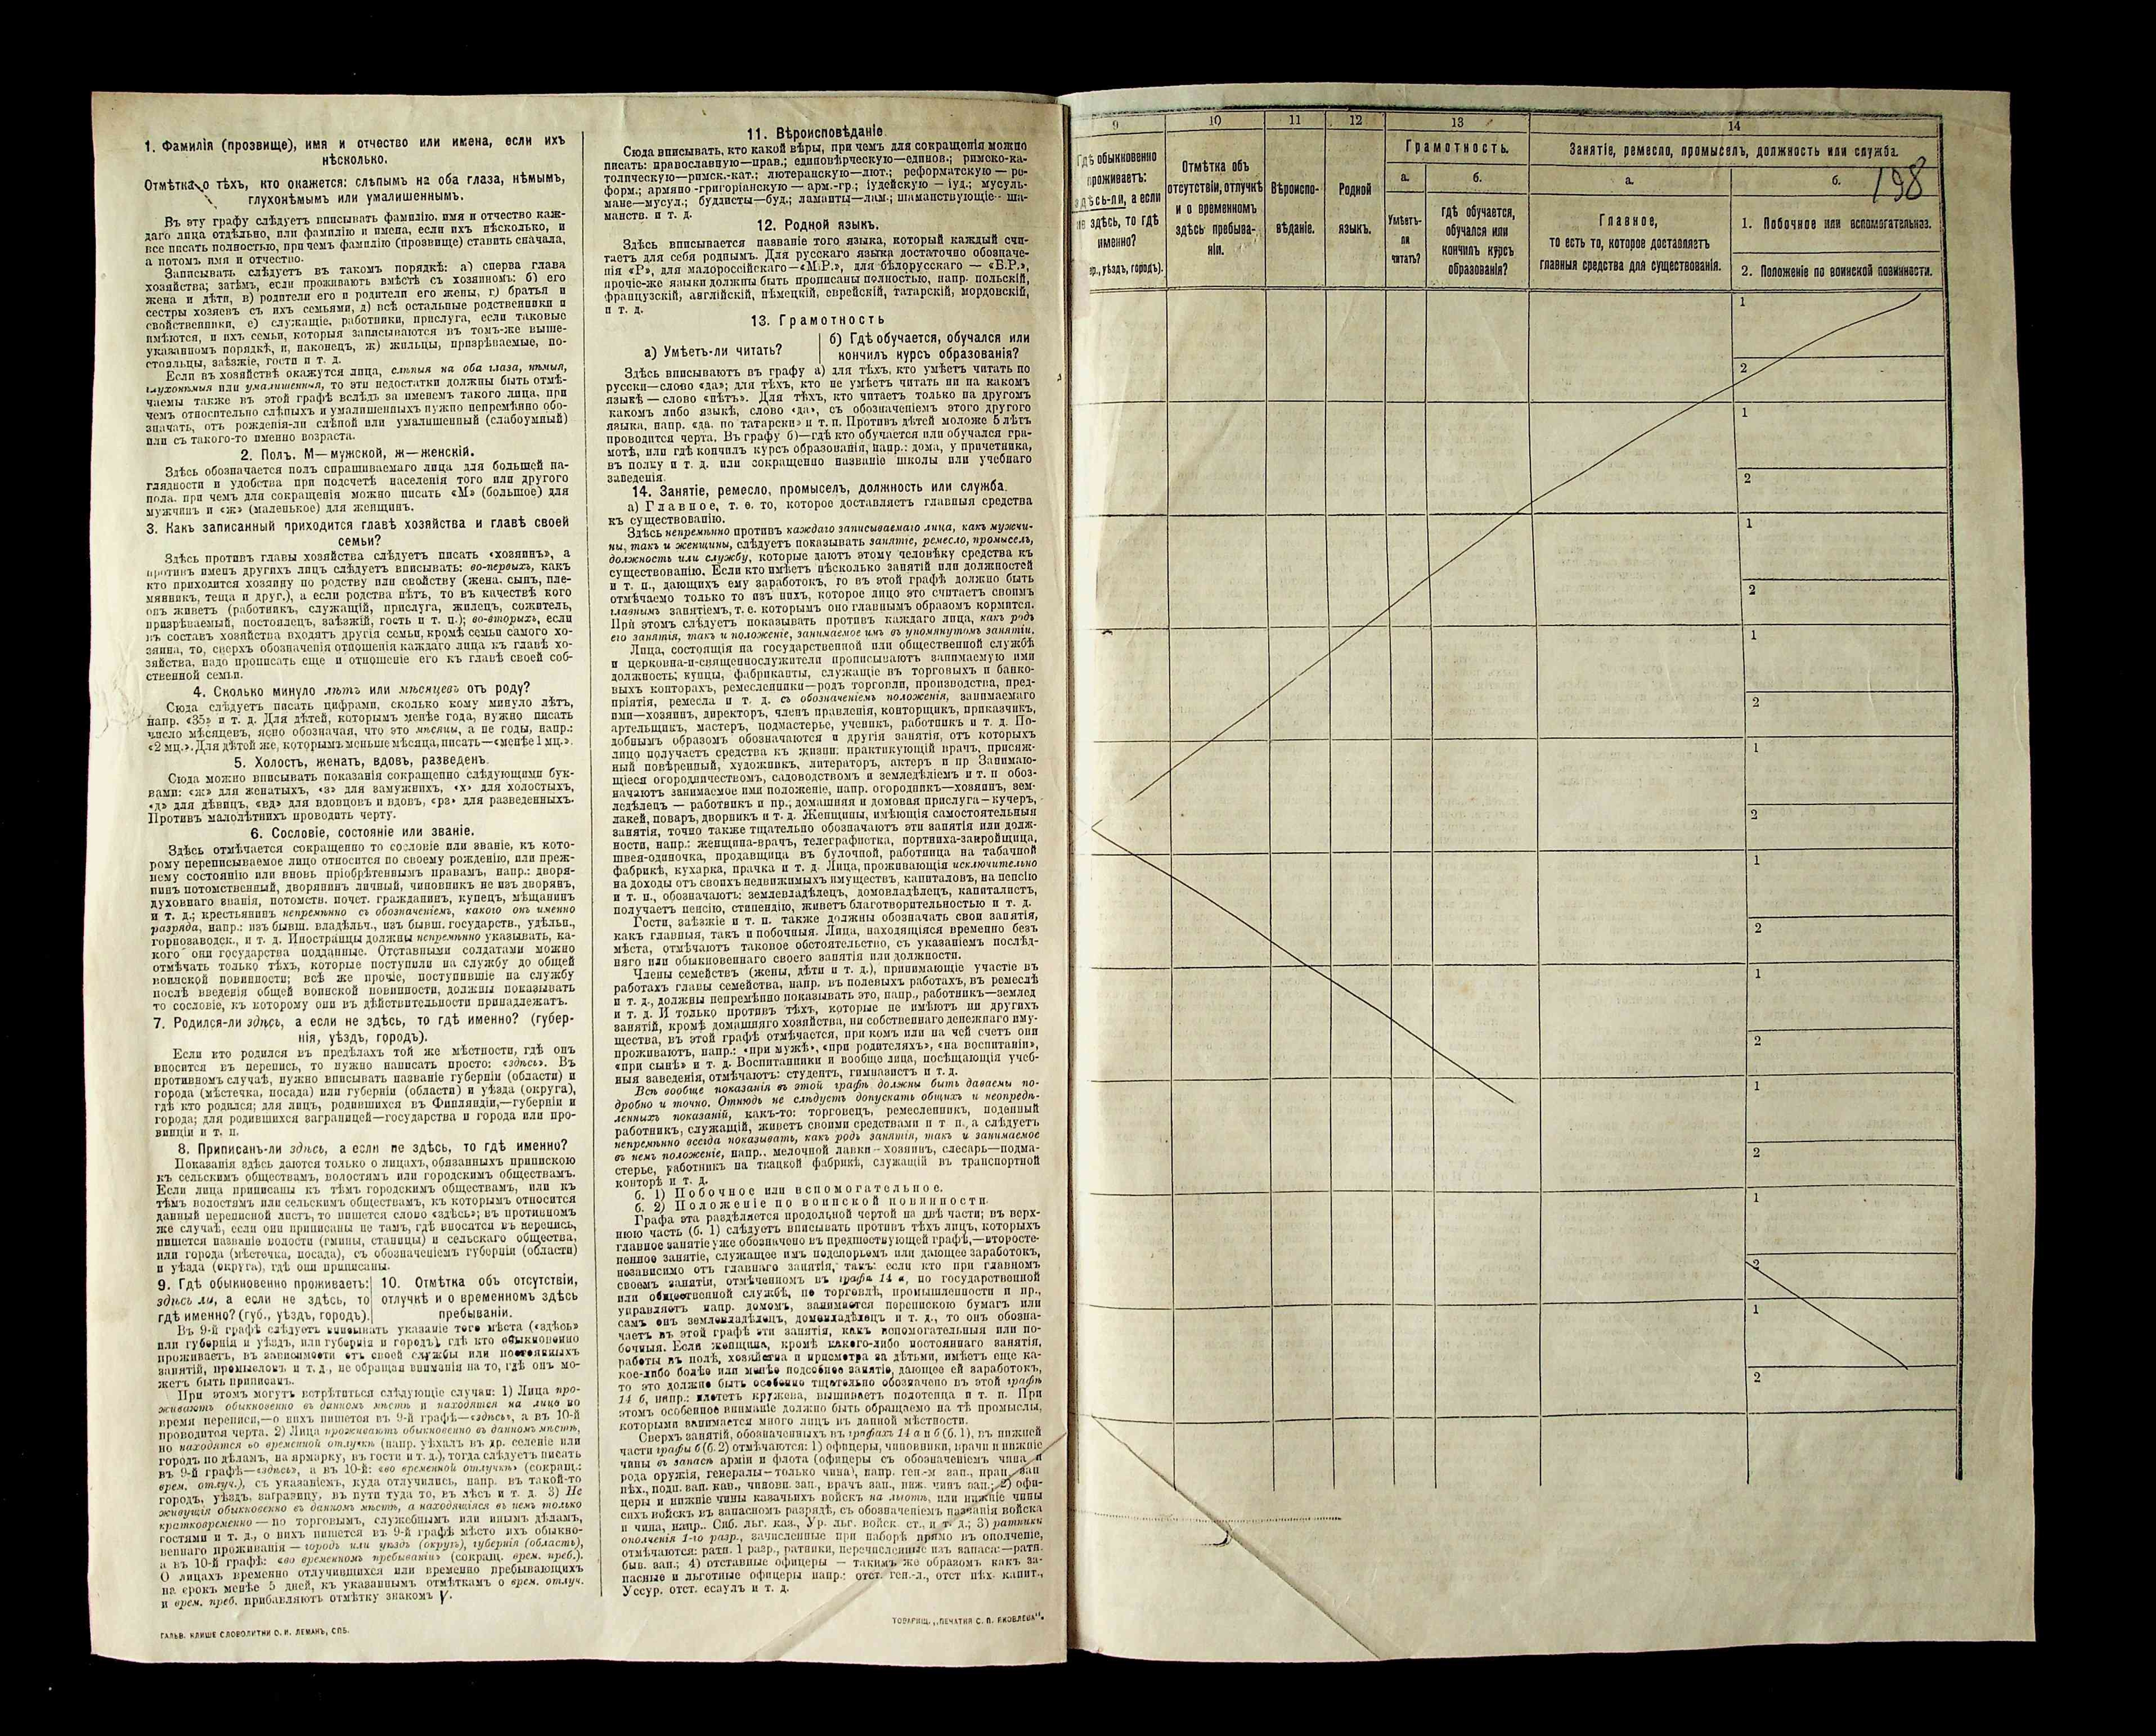 1. Фамилія (прозвище), имя и отчество или имена, если ихъ
нѣсколько.
Отмѣтка о тѣхъ, кто окажется: слѣпымъ на оба глаза, нѣмымъ,
глухонѣмымъ или умалишеннымъ.
Въ эту графу слѣдуетъ вписывать фамилію, имя и отчество каж-
даго лица отдѣльно, или фамилію и имена, если ихъ нѣсколько, и
все писать полностью, при чемъ фамилію (прозвище) ставить сначала,
а потомъ имя и отчество.
Записывать слѣдуетъ въ такомъ порядкѣ: а) сперва глава
хозяйства; затѣмъ, если проживаютъ вмѣстѣ съ хозяиномъ: б) его
жена и дѣти, в) родители его и родители его жены, г) братья и
сестры хозяевъ съ ихъ семьями, д) всѣ остальные родственники и
свойственники, е) служащіе, работники, прислуга, если таковые
имѣются, и ихъ семьи, которыя записываются въ томъ-же выше-
указанномъ порядкѣ, и, наконецъ, ж) жильцы, призрѣваемые, по-
стояльцы, заѣзжіе, гости и т. д.
Если въ хозяйствѣ окажутся лица, слѣпыя на оба глаза, нѣмыя,
глухонѣмыя или умалишенныя, то эти недостатки должны быть отмѣ-
чаемы также въ этой графѣ вслѣдъ за именемъ такого лица, при
чемъ относительно слѣпыхъ и умалишенныхъ нужно непремѣнно обо-
значать, отъ рожденія-ли слѣпой или умалишенный (слабоумный)
или съ такого-то именно возраста.
2. Полъ. М—мужской, ж—женскій.
Здѣсь обозначается полъ спрашиваемаго лица для большей на-
глядности и удобства при подсчетѣ населенія того или другого
пола, при чемъ для сокращенія можно писать «М» (большое) для
мужчинъ и «ж» (маленькое) для женщинъ.
3. Какъ записанный приходится главѣ хозяйства и главѣ своей
семьи?
Здѣсь противъ главы хозяйства слѣдуетъ писать «хозяинъ», а
противъ именъ другихъ лицъ слѣдуетъ вписывать: во-первыхъ, какъ
кто приходится хозяину по родству или свойству (жена, сынъ, пле-
мянникъ, теща и друг.), а если родства нѣтъ, то въ качествѣ кого
онъ живетъ (работникъ, служащій, прислуга, жилецъ, сожитель,
призрѣваемый, постоялецъ, заѣзжій, гость и т. п.); во-вторыхъ, если
въ составъ хозяйства входятъ другія семьи, кромѣ семьи самого хо-
зяина, то, сверхъ обозначенія отношенія каждаго лица къ главѣ хо-
зяйства, надо прописать еще и отношеніе его къ главѣ своей соб-
ственной семьи.
4. Сколько минуло лѣтъ или мѣсяцевъ отъ роду?
Сюда слѣдуетъ писать цифрами, сколько кому минуло лѣтъ,
напр. «35» и т. д. Для дѣтей, которымъ менѣе года, нужно писать
число мѣсяцевъ, ясно обозначая, что это мѣсяцы, а не годы, напр.:
«2 мц.». Для дѣтей же, которымъ меньше мѣсяца, писать—«менѣе 1 мц.».
5. Холостъ, женатъ, вдовъ, разведенъ.
Сюда можно вписывать показанія сокращенно слѣдующими бук-
вами: «ж» для женатыхъ, «з» для замужнихъ, «х» для холостыхъ,
«д» для дѣвицъ, «вд» для вдовцовъ и вдовъ, «рз» для разведенныхъ.
Противъ малолѣтнихъ проводить черту.
6. Сословіе, состояніе или званіе.
Здѣсь отмѣчается сокращенно то сословіе или званіе, къ кото-
рому переписываемое лицо относится по своему рожденію, или преж-
нему состоянію или вновь пріобрѣтеннымъ правамъ, напр.: дворя-
нинъ потомственный, дворянинъ личный, чиновникъ не изъ дворянъ,
духовнаго званія, потомств. почет. гражданинъ, купецъ, мѣщанинъ
и т. д.; крестьянинъ непремѣнно съ обозначеніемъ, какого онъ именно
разряда, напр.: изъ бывш. владѣльч., изъ бывш. государств., удѣльн.,
горнозаводск., и т. д. Иностранцы должны непремѣнно указывать, ка-
кого они государства подданные. Отставными солдатами можно
отмѣчать только тѣхъ, которые поступили на службу до общей
воинской повинности; всѣ же прочіе, поступившіе на службу
послѣ введенія общей воинской повинности, должны показывать
то сословіе, къ которому они въ дѣйствительности принадлежатъ.
7. Родился-ли здѣсь, а если не здѣсь, то гдѣ именно? (губер-
нія, уѣздъ, городъ).
Если кто родился въ предѣлахъ той же мѣстности, гдѣ онъ
вносится въ перепись, то нужно написать просто: «здѣсь». Въ
противномъ случаѣ, нужно вписывать названіе губерніи (области) и
города (мѣстечка, посада) или губерніи (области) и уѣзда (округа),
гдѣ кто родился; для лицъ, родившихся въ Финляндіи,—губерніи и
города; для родившихся заграницей—государства и города или про-
винціи и т. п.
8. Приписанъ-ли здѣсь, а если не здѣсь, то гдѣ именно?
Показанія здѣсь даются только о лицахъ, обязанныхъ припискою
къ сельскимъ обществамъ, волостямъ или городскимъ обществамъ.
Если лица приписаны къ тѣмъ городскимъ обществамъ, или къ
тѣмъ волостямъ или сельскимъ обществамъ, къ которымъ относится
данный переписной листъ, то пишется слово «здѣсь»; въ противномъ
же случаѣ, если они приписаны не тамъ, гдѣ вносятся въ перепись,
пишется названіе волости (гмины, станицы) и сельскаго общества,
или города (мѣстечка, посада), съ обозначеніемъ губерніи (области)
и уѣзда (округа), гдѣ они приписаны.
9. Гдѣ обыкновенно проживаетъ:
здѣсь ли, а если не здѣсь, то
гдѣ именно? (губ., уѣздъ, городъ).
10. Отмѣтка объ отсутствіи,
отлучкѣ и о временномъ здѣсь
пребываніи.
Въ 9-й графѣ слѣдуетъ вписывать указаніе того мѣста («здѣсь»
или губернія и уѣздъ, или губернія и городъ), гдѣ кто обыкновенно
проживаетъ, въ зависимости отъ своей службы или постоянныхъ
занятій, промысловъ и т. д., не обращая вниманія на то, гдѣ онъ мо-
жетъ быть приписанъ.
При этомъ могутъ встрѣтиться слѣдующіе случаи: 1) Лица про-
живаютъ обыкновенно въ данномъ мѣстѣ и находятся на лицо во
время переписи,—о нихъ пишется въ 9-й графѣ—«здѣсь», а въ 10-й
проводится черта. 2) Лица проживаютъ обыкновенно въ данномъ мѣстѣ,
но находятся во временной отлучкѣ (напр. уѣхалъ въ др. селеніе или
городъ по дѣламъ, на ярмарку, въ гости и т. д.), тогда слѣдуетъ писать
въ 9-й графѣ—«здѣсь», а въ 10-й: «во временной отлучкѣ» (сокращ.:
врем. отлуч.), съ указаніемъ, куда отлучились, напр. въ такой-то
городъ, уѣздъ, заграницу, въ пути туда то, въ лѣсъ и т. д. 3) Не
живущія обыкновенно въ данномъ мѣстѣ, а находящіяся въ немъ только
кратковременно — по торговымъ, служебнымъ или инымъ дѣламъ,
гостями и т. д., о нихъ пишется въ 9-й графѣ мѣсто ихъ обыкно-
веннаго проживанія — городъ или уѣздъ (округъ), губернія (область),
а въ 10-й графѣ: «во временномъ пребываніи» (сокращ. врем. преб.).
О лицахъ временно отлучившихся или временно пребывающихъ
на срокъ менѣе 5 дней, къ указаннымъ отмѣткамъ о врем. отлуч.
и врем. преб. прибавляютъ отмѣтку знакомъ V.
ГАЛЬВ. КЛИШЕ СЛОВОЛИТНИ О. И. ЛЕМАНЪ, СПБ.
11. Вѣроисповѣданіе.
Сюда вписывать, кто какой вѣры, при чемъ для сокращенія можно
писать: православную—прав.; единовѣрческую—единов.; римско-ка-
толическую—римск.-кат.; лютеранскую—лют.; реформатскую — ре-
форм.; армяно-григоріанскую — арм.-гр.; іудейскую — іуд.; мусуль-
мане—мусул.; буддисты—буд.; ламаиты—лам.; шаманствующіе—ша-
манств. и т. д.
12. Родной языкъ.
Здѣсь вписывается названіе того языка, который каждый счи-
таетъ для себя роднымъ. Для русскаго языка достаточно обозначе-
нія «Р», для малороссійскаго—«М.Р.», для бѣлорусскаго — «Б.Р.»,
прочіе-же языки должны быть прописаны полностью, напр. польскій,
французскій, англійскій, нѣмецкій, еврейскій, татарскій, мордовскій,
и т. д.
13. Грамотность
а) Умѣетъ-ли читать?
б) Гдѣ обучается, обучался или
кончилъ курсъ образованія?
Здѣсь вписываютъ въ графу а) для тѣхъ, кто умѣетъ читать по
русски—слово «да»; для тѣхъ, кто не умѣетъ читать ни на какомъ
языкѣ — слово «нѣтъ». Для тѣхъ, кто читаетъ только на другомъ
какомъ либо языкѣ, слово «да», съ обозначеніемъ этого другого
языка, напр. «да, по татарски» и т. п. Противъ дѣтей моложе 5 лѣтъ
проводится черта. Въ графу б)—гдѣ кто обучается или обучался гра-
мотѣ, или гдѣ кончилъ курсъ образованія, напр.: дома, у причетника,
въ полку и т. д. или сокращенно названіе школы или учебнаго
заведенія.
14. Занятіе, ремесло, промыселъ, должность или служба.
а) Главное, т. е. то, которое доставляетъ главныя средства
къ существованію.
Здѣсь непремѣнно противъ каждаго записываемаго лица, какъ мужчи-
ны, такъ и женщины, слѣдуетъ показывать занятіе, ремесло, промыселъ,
должность или службу, которые даютъ этому человѣку средства къ
существованію. Если кто имѣетъ нѣсколько занятій или должностей
и т. п., дающихъ ему заработокъ, то въ этой графѣ должно быть
отмѣчаемо только то изъ нихъ, которое лицо это считаетъ своимъ
главнымъ занятіемъ, т. е. которымъ оно главнымъ образомъ кормится.
При этомъ слѣдуетъ показывать противъ каждаго лица, какъ родъ
его занятія, такъ и положеніе, занимаемое имъ въ упомянутомъ занятіи.
Лица, состоящія на государственной или общественной службѣ
и церковно-и-священнослужители прописываютъ занимаемую ими
должность; купцы, фабриканты, служащіе въ торговыхъ и банко-
выхъ конторахъ, ремесленники—родъ торговли, производства, пред-
пріятія, ремесла и т. д. съ обозначеніемъ положенія, занимаемаго
ими—хозяинъ, директоръ, членъ правленія, конторщикъ, приказчикъ,
артельщикъ, мастеръ, подмастерье, ученикъ, работникъ и т. д. По-
добнымъ образомъ обозначаются и другія занятія, отъ которыхъ
лицо получаетъ средства къ жизни: практикующій врачъ, присяж-
ный повѣренный, художникъ, литераторъ, актеръ и пр. Занимаю-
щіеся огородничествомъ, садоводствомъ и земледѣліемъ и т. п. обоз-
начаютъ занимаемое ими положеніе, напр. огородникъ—хозяинъ, зем-
ледѣлецъ — работникъ и пр.; домашняя и домовая прислуга—кучеръ,
лакей, поваръ, дворникъ и т. д. Женщины, имѣющія самостоятельныя
занятія, точно также тщательно обозначаютъ эти занятія или долж-
ности, напр.: женщина-врачъ, телеграфистка, портниха-закройщица,
швея-одиночка, продавщица въ булочной, работница на табачной
фабрикѣ, кухарка, прачка и т. д. Лица, проживающія исключительно
на доходы отъ своихъ недвижимыхъ имуществъ, капиталовъ, на пенсію
и т. п., обозначаютъ: землевладѣлецъ, домовладѣлецъ, капиталистъ,
получаетъ пенсію, стипендію, живетъ благотворительностью и т. д.
Гости, заѣзжіе и т. п. также должны обозначать свои занятія,
какъ главныя, такъ и побочныя. Лица, находящіяся временно безъ
мѣста, отмѣчаютъ таковое обстоятельство, съ указаніемъ послѣд-
няго или обыкновеннаго своего занятія или должности.
Члены семействъ (жены, дѣти и т. д.), принимающіе участіе въ
работахъ главы семейства, напр. въ полевыхъ работахъ, въ ремеслѣ
и т. д., должны непремѣнно показывать это, напр., работникъ—землед.
и т. д. И только противъ тѣхъ, которые не имѣютъ ни другихъ
занятій, кромѣ домашняго хозяйства, ни собственнаго денежнаго иму-
щества, въ этой графѣ отмѣчается, при комъ или на чей счетъ они
проживаютъ, напр.: «при мужѣ», «при родителяхъ», «на воспитаніи»,
«при сынѣ» и т. д. Воспитанники и вообще лица, посѣщающія учеб-
ныя заведенія, отмѣчаютъ: студентъ, гимназистъ и т. д.
Всѣ вообще показанія въ этой графѣ должны быть даваемы по-
дробно и точно. Отнюдь не слѣдуетъ допускать общихъ и неопредѣ-
ленныхъ показаній, какъ-то: торговецъ, ремесленникъ, поденный
работникъ, служащій, живетъ своими средствами и т. п., а слѣдуетъ
непремѣнно всегда показывать, какъ родъ занятія, такъ и занимаемое
въ немъ положеніе, напр.. мелочной лавки—хозяинъ, слесарь—подма-
стерье, работникъ на ткацкой фабрикѣ, служащій въ транспортной
конторѣ и т. д.
б. 1) Побочное или вспомогательное.
б. 2) Положеніе по воинской повинности.
Графа эта раздѣляется продольной чертой на двѣ части; въ верх-
нюю часть (б. 1) слѣдуетъ вписывать противъ тѣхъ лицъ, которыхъ
главное занятіе уже обозначено въ предшествующей графѣ,—второсте-
пенное занятіе, служащее имъ подспорьемъ или дающее заработокъ,
независимо отъ главнаго занятія, такъ: если кто при главномъ
своемъ занятіи, отмѣченномъ въ графѣ 14 а, по государственной
или общественной службѣ, по торговлѣ, промышленности и пр.,
управляетъ напр. домомъ, занимается перепискою бумагъ или
самъ онъ землевладѣлецъ, домовладѣлецъ и т. д., то онъ обозна-
чаетъ въ этой графѣ эти занятія, какъ вспомогательныя или по-
бочныя. Если женщина, кромѣ какого-либо постояннаго занятія,
работы въ полѣ, хозяйства и присмотра за дѣтьми, имѣетъ еще ка-
кое-либо болѣе или менѣе подсобное занятіе, дающее ей заработокъ,
то это должно быть особенно тщательно обозначено въ этой графѣ
14 б, напр.: плететъ кружева, вышиваетъ полотенца и т. п. При
этомъ особенное вниманіе должно быть обращаемо на тѣ промыслы,
которыми занимается много лицъ въ данной мѣстности.
Сверхъ занятій, обозначенныхъ въ графахъ 14 а и б (б. 1), въ нижней
части графы б (б. 2) отмѣчаются: 1) офицеры, чиновники, врачи и нижніе
чины въ запасѣ арміи и флота (офицеры съ обозначеніемъ чина и
рода оружія, генералы—только чина), напр. ген.-м. зап., прап. зап.
пѣх., подп. зап. кав., чиновн. зап., врачъ зап., ниж. чинъ зап.; 2) офи-
церы и нижніе чины казачьихъ войскъ на льготѣ, или нижніе чины
сихъ войскъ въ запасномъ разрядѣ, съ обозначеніемъ названія войска
и чина, напр.. Сиб. льг. каз., Ур. льг. войск. ст., и т. д.; 3) ратники
ополченія 1-го разр., зачисленные при наборѣ прямо въ ополченіе,
отмѣчаются: ратн. 1 разр., ратники, перечисленные изъ запаса—ратн.
быв. зап.; 4) отставные офицеры — такимъ же образомъ какъ за-
пасные и льготные офицеры напр.: отст. ген.-л., отст. пѣх. капит.,
Уссур. отст. есаулъ и т. д.
ТОВАРИЩ. „ПЕЧАТНЯ С. П. ЯКОВЛЕВА“.
9
10
11
12
13
14
Гдѣ обыкновенно
проживаетъ:
здѣсь-ли, а если
не здѣсь, то гдѣ
именно?
уѣздъ, городъ).
Отмѣтка объ
отсутствіи, отлучкѣ
и о временномъ
здѣсь пребыва-
ніи.
Вѣроиспо-
вѣданіе.
Родной
языкъ.
Грамотность.
а.
Умѣетъ-
ли
читать?
б.
гдѣ обучается,
обучался или
кончилъ курсъ
образованія?
Занятіе, ремесло, промыселъ, должность или служба.
198
а.
Главное,
то есть то, которое доставляетъ
главныя средства для существованія.
б.
1. Побочное или вспомогательное.
2. Положеніе по воинской повинности.
1
2
1
2
1
2
1
2
1
2
1
2
1
2
1
2
1
2
1
2